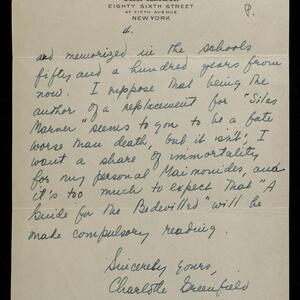 EIGHTY SIXTH STREET
AT FIFTH AVENUE
NEW YORK
P.
4.
and memorized in the schools
fifty and a hundred years from
now. I suppose that being the
author of a replacement for "Silas
Marner" seems to you to be a fate
worse than death, but it isn't; I
want a share of immortality
for my personal Maimonides, and
it's too much to expect that "A
Guide for the Bedevilled" will be
made compulsory reading.
Sincerely yours,
Charlotte Greenfield